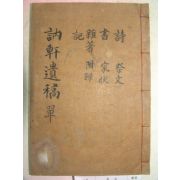 詩 祭文
書 家狀
雜著 附錄
記
訥軒遺稿 單